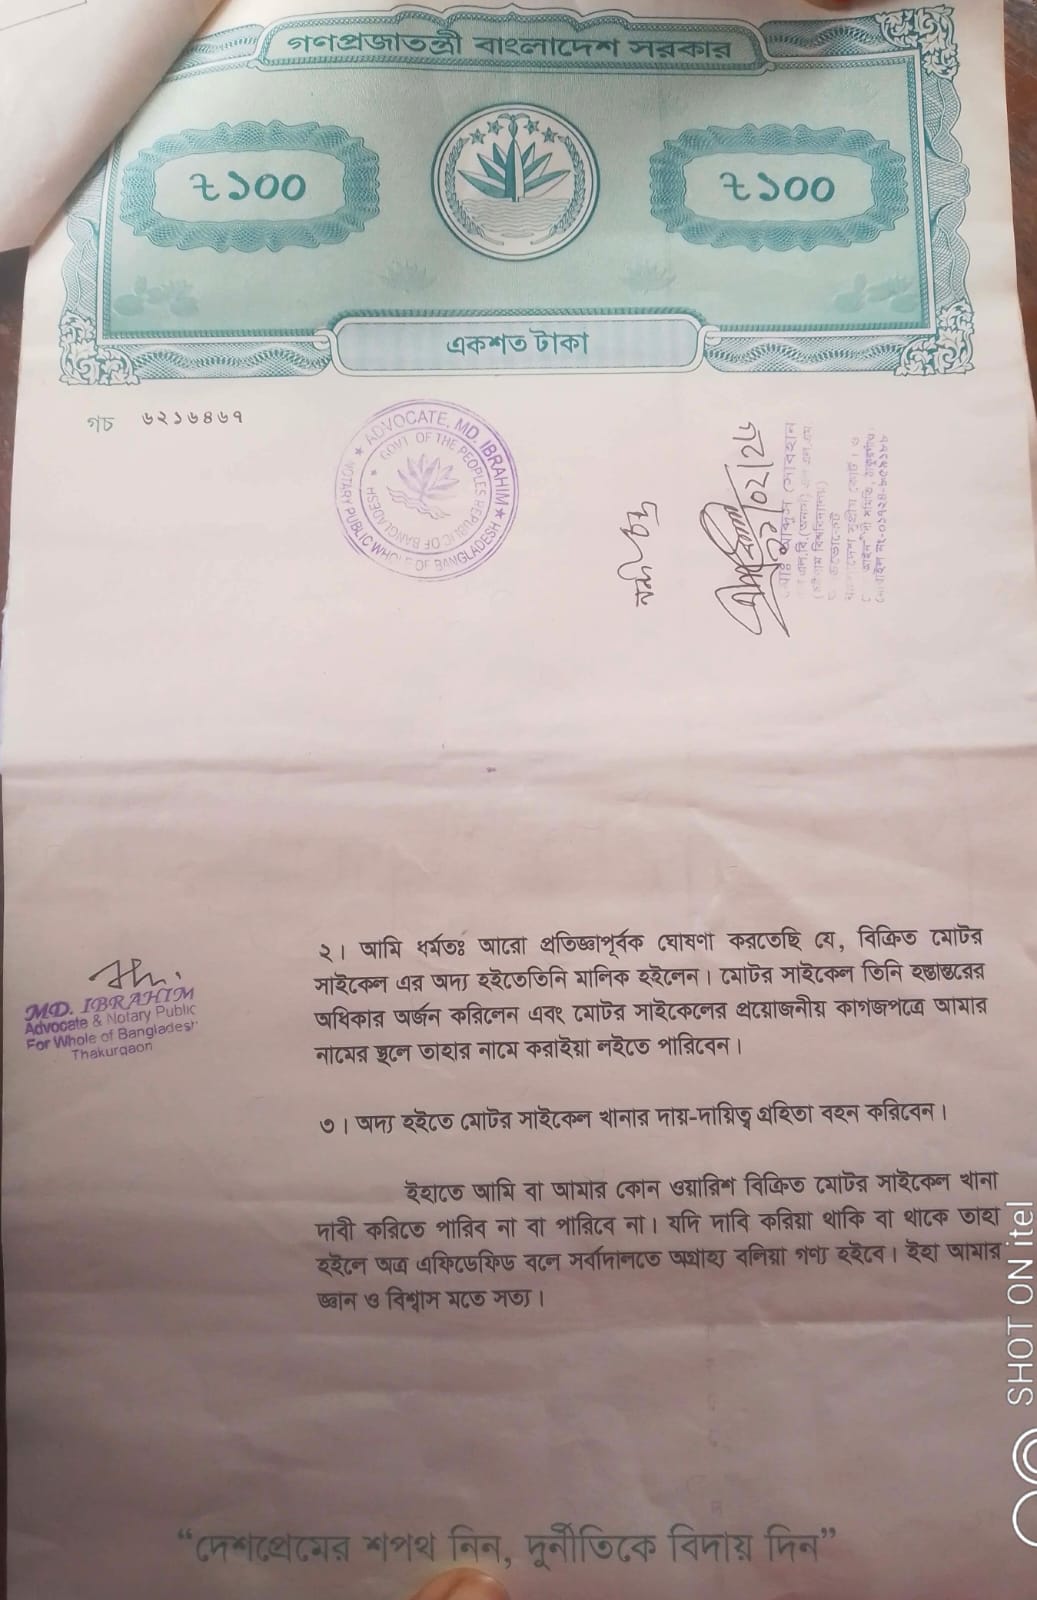 গণপ্রজাতন্ত্রী বাংলাদেশ সরকার
৳১০০
৳১০০
একশত টাকা
গচ ৬২১৬৪৬৭
ADVOCATE, MD. IBRAHIM
NOTARY PUBLIC WHOLE OF BANGLADESH
GOVT OF THE PEOPLES REPUBLIC OF BANGLADESH
২। আমি ধর্মতঃ আরো প্রতিজ্ঞাপূর্বক ঘোষণা করতেছি যে, বিক্রিত মোটর
সাইকেল এর অদ্য হইতেতিনি মালিক হইলেন। মোটর সাইকেল তিনি হস্তান্তরের
অধিকার অর্জন করিলেন এবং মোটর সাইকেলের প্রয়োজনীয় কাগজপত্রে আমার
নামের স্থলে তাহার নামে করাইয়া লইতে পারিবেন।
MD. IBRAHIM
Advocate & Notary Public
For Whole of Bangladesh
Thakurgaon
৩। অদ্য হইতে মোটর সাইকেল খানার দায়-দায়িত্ব গ্রহিতা বহন করিবেন।
ইহাতে আমি বা আমার কোন ওয়ারিশ বিক্রিত মোটর সাইকেল খানা
দাবী করিতে পারিব না বা পারিবে না। যদি দাবি করিয়া থাকি বা থাকে তাহা
হইলে অত্র এফিডেফিড বলে সর্বাদালতে অগ্রাহ্য বলিয়া গণ্য হইবে। ইহা আমার
জ্ঞান ও বিশ্বাস মতে সত্য।
“দেশপ্রেমের শপথ নিন, দুর্নীতিকে বিদায় দিন”
SHOT ON itel